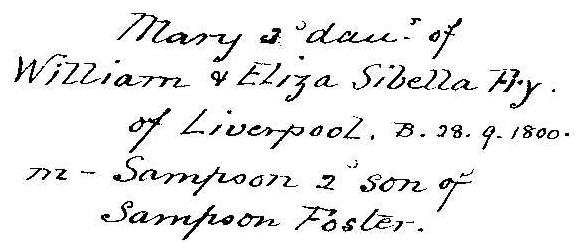 Mary 2ᵈ dauʳ of
William & Eliza Sibella Fry.
of Liverpool. B. 28. 9. 1800.
m - Sampson 2ᵈ son of
Sampson Foster.